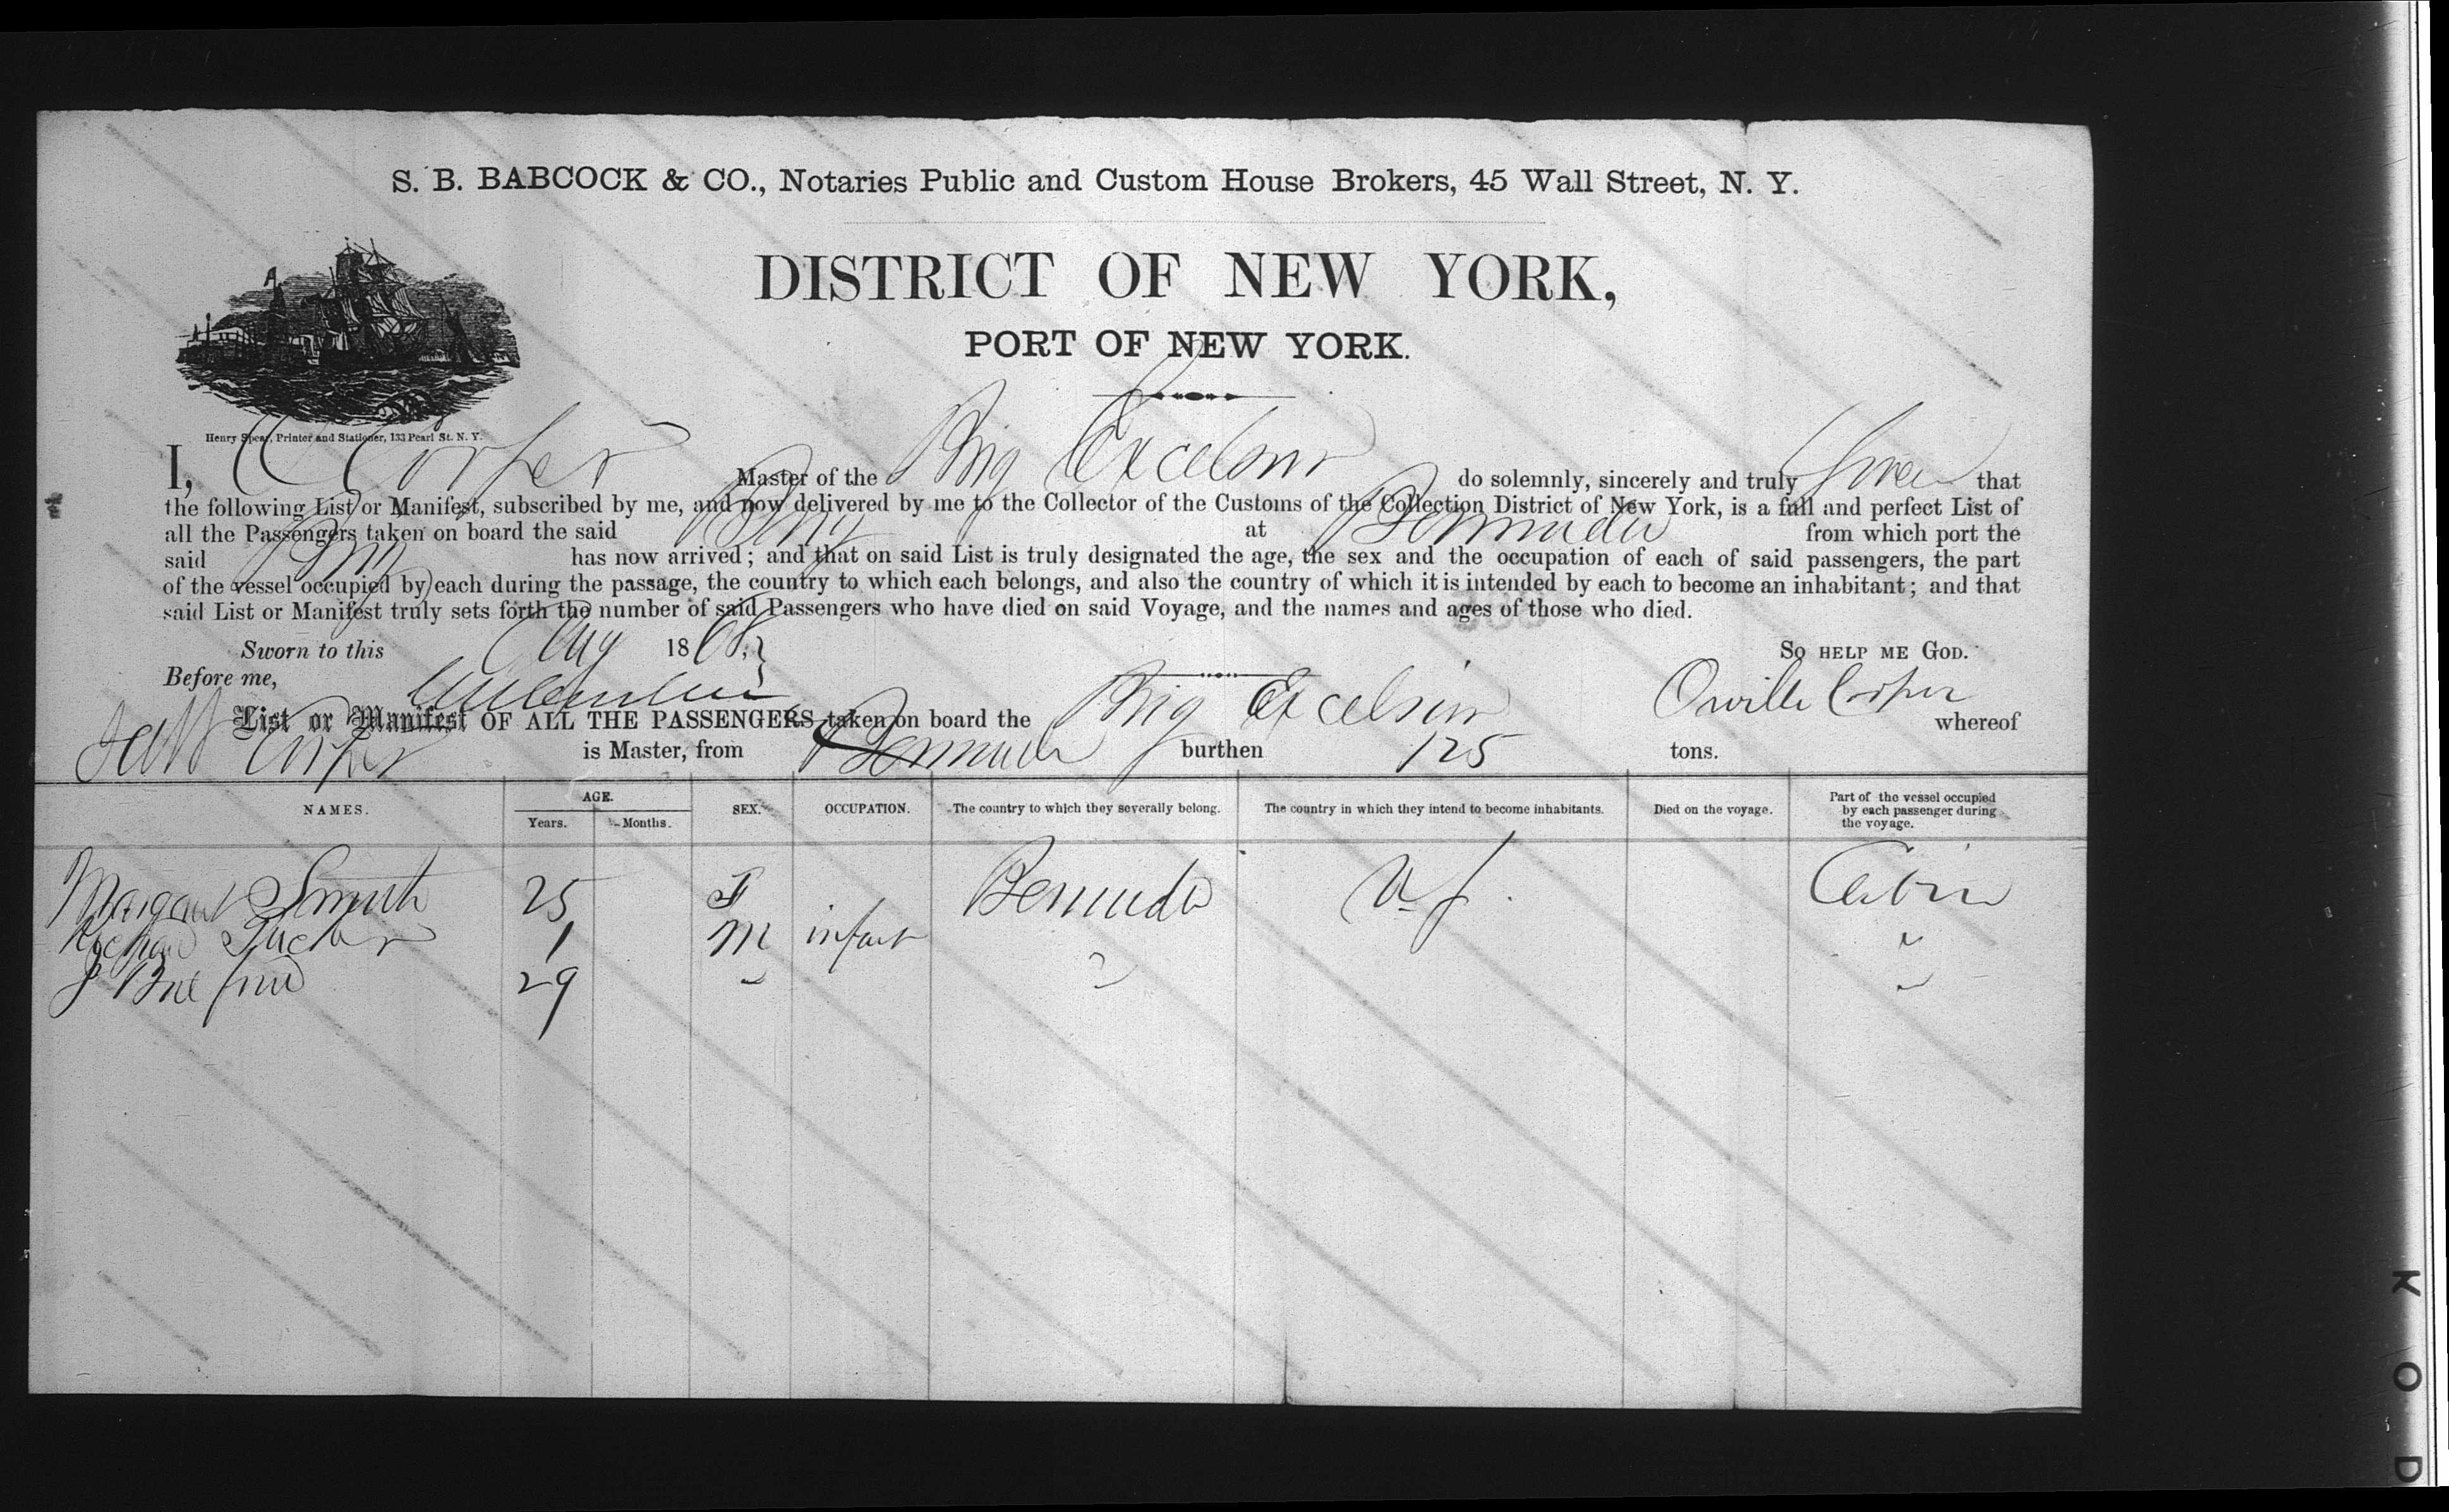 S. B. BABCOCK & CO., Notaries Public and Custom House Brokers, 45 Wall Street, N. Y.
DISTRICT OF NEW YORK,
PORT OF NEW YORK.
Henry Spear, Printer and Stationer, 133 Pearl St. N. Y.
I, Master of the Brig Excelsior do solemnly, sincerely and truly swear that
the following List or Manifest, subscribed by me, and now delivered by me to the Collector of the Customs of the Collection District of New York, is a full and perfect List of
all the Passengers taken on board the said Brig at Bermuda from which port the
said Brig has now arrived; and that on said List is truly designated the age, the sex and the occupation of each of said passengers, the part
of the vessel occupied by each during the passage, the country to which each belongs, and also the country of which it is intended by each to become an inhabitant; and that
said List or Manifest truly sets forth the number of said Passengers who have died on said Voyage, and the names and ages of those who died.
Sworn to this Aug 1868, So HELP ME GOD.
Before me, Orville
List or Manifest OF ALL THE PASSENGERS taken on board the Brig Excelsior whereof
is Master, from Bermuda burthen 125 tons.
NAMES. AGE. Years. Months. SEX. OCCUPATION. The country to which they severally belong. The country in which they intend to become inhabitants. Died on the voyage. Part of the vessel occupied by each passenger during the voyage.
Margaret Smith 25 F Bermuda Cabin
Richard Tucker 1 M infant "
J 29 " " "
KOD